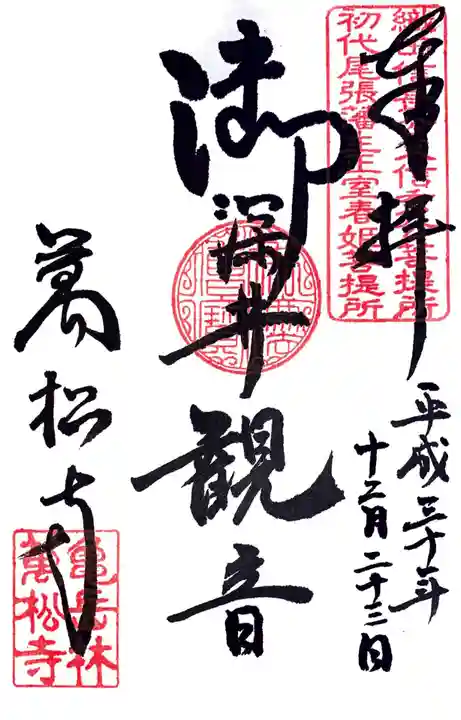 奉拝
平成三十年
十二月二十三日
御深井観音
萬松寺
初代尾張藩主正室春姫菩提所
亀岳林
萬松寺